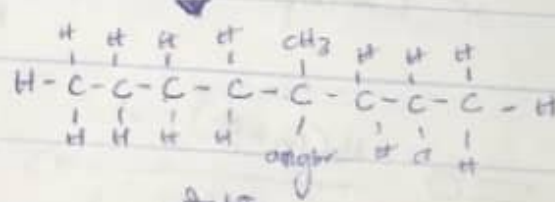 H H H H CH3 H H H
H - C - C - C - C - C - C - C - C - H
H H H H H H